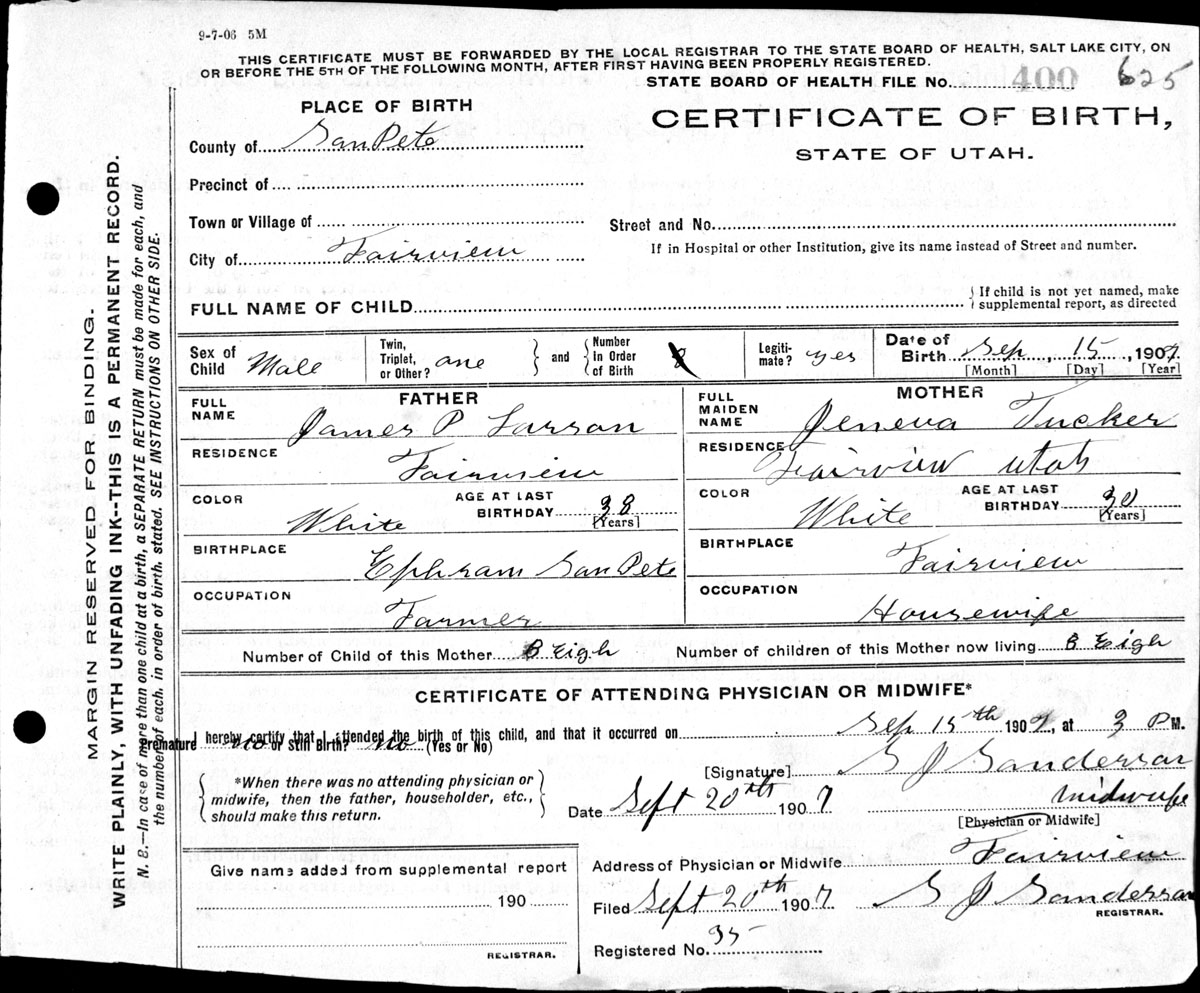 9-7-06 5M
THIS CERTIFICATE MUST BE FORWARDED BY THE LOCAL REGISTRAR TO THE STATE BOARD OF HEALTH, SALT LAKE CITY, ON
OR BEFORE THE 5TH OF THE FOLLOWING MONTH, AFTER FIRST HAVING BEEN PROPERLY REGISTERED.
STATE BOARD OF HEALTH FILE No. 400 625
PLACE OF BIRTH
CERTIFICATE OF BIRTH,
STATE OF UTAH.
County of SanPete
Precinct of
Town or Village of
Street and No.
City of Fairview
If in Hospital or other Institution, give its name instead of Street and number.
FULL NAME OF CHILD
If child is not yet named, make
supplemental report, as directed
Sex of Child Male
Twin, Triplet, or Other? one
and
Number in Order of Birth 8
Legiti-mate? yes
Date of Birth Sep 15, 1907
[Month] [Day] [Year]
FATHER
FULL NAME James P Larson
RESIDENCE Fairview
COLOR White
AGE AT LAST BIRTHDAY 38
[Years]
BIRTHPLACE Ephram SanPete
OCCUPATION Farmer
MOTHER
FULL MAIDEN NAME Jeneva Tucker
RESIDENCE Fairview Utah
COLOR White
AGE AT LAST BIRTHDAY 30
[Years]
BIRTHPLACE Fairview
OCCUPATION Housewife
Number of Child of this Mother 8 Eigh
Number of children of this Mother now living 8 Eigh
CERTIFICATE OF ATTENDING PHYSICIAN OR MIDWIFE*
I hereby certify that I attended the birth of this child, and that it occurred on Sep 15th 1907, at 3 P M.
Premature no or Still Birth? no (Yes or No)
*When there was no attending physician or
midwife, then the father, householder, etc.,
should make this return.
[Signature] S J Sanderson
Date Sept 20th 1907
midwife
[Physician or Midwife]
Give name added from supplemental report
190
REGISTRAR.
Address of Physician or Midwife Fairview
Filed Sept 20th 1907 S J Sanderson
REGISTRAR.
Registered No. 35
MARGIN RESERVED FOR BINDING.
WRITE PLAINLY, WITH UNFADING INK--THIS IS A PERMANENT RECORD.
N. B.—In case of more than one child at a birth, a SEPARATE RETURN must be made for each, and
the number of each, in order of birth, stated. SEE INSTRUCTIONS ON OTHER SIDE.